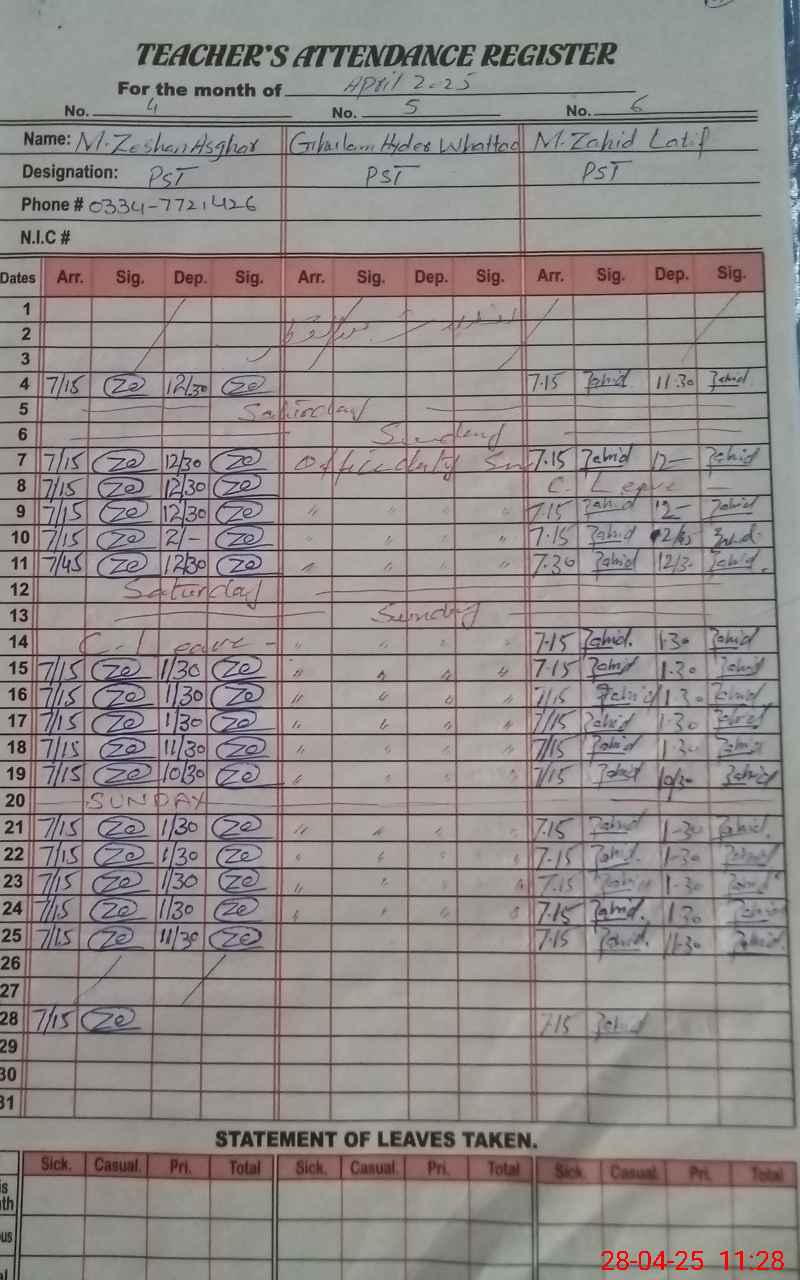 TEACHER'S ATTENDANCE REGISTER
For the month of April 2025
No. 4 No. 5 No. 6
Name: M. Zeshan Asghar Ghulam Hyder Whattoo M. Zahid Latif
Designation: PST PST PST
Phone # 0334-7721426
N.I.C #
Dates Arr. Sig. Dep. Sig. Arr. Sig. Dep. Sig. Arr. Sig. Dep. Sig.
1
2
3
4 7/15 Ze 12/30 Ze 7.15 Zahid 11.30 Zahid
5 Saturday
6 Sunday
7 7/15 Ze 12/30 Ze Office duty 7.15 Zahid 12- Zahid
8 7/15 Ze 12/30 Ze C. Leave -
9 7/15 Ze 12/30 Ze " " " " 7.15 Zahid 12- Zahid
10 7/15 Ze 2/- Ze " " " " 7.15 Zahid Zahid
11 7/45 Ze 12/30 Ze " " " " 7.30 Zahid 12/30 Zahid.
12 Saturday
13 Sunday
14 C. Leave - " " " " 7.15 Zahid. 1.30 Zahid
15 7/15 Ze 1/30 Ze " " " " 7.15 Zahid 1.30 Zahid
16 7/15 Ze 1/30 Ze " " " " 7/15 Zahid 1.30 Zahid.
17 7/15 Ze 1/30 Ze " " " " 7/15 Zahid 1.30 Zahid
18 7/15 Ze 11/30 Ze " " " " 7/15 Zahid 1.30 Zahid
19 7/15 Ze 10/30 Ze " " " " 7/15 Zahid 10/30 Zahid
20 SUNDAY
21 7/15 Ze 1/30 Ze " " " " 7.15 Zahid 1-30 Zahid.
22 7/15 Ze 1/30 Ze " " " " 7.15 Zahid. 1-30 Zahid
23 7/15 Ze 1/30 Ze " " " " 7.15 Zahid 1-30 Zahid
24 7/15 Ze 1/30 Ze " " " " 7.15 Zahid. 1.30 Zahid
25 7/15 Ze 11/30 Ze 7.15 Zahid. 11.30 Zahid.
26
27
28 7/15 Ze 7.15 Zahid
29
30
31
STATEMENT OF LEAVES TAKEN.
Sick. Casual. Pri. Total Sick. Casual. Pri. Total Sick. Casual. Pri. Total
is
th
us
28-04-25 11:28